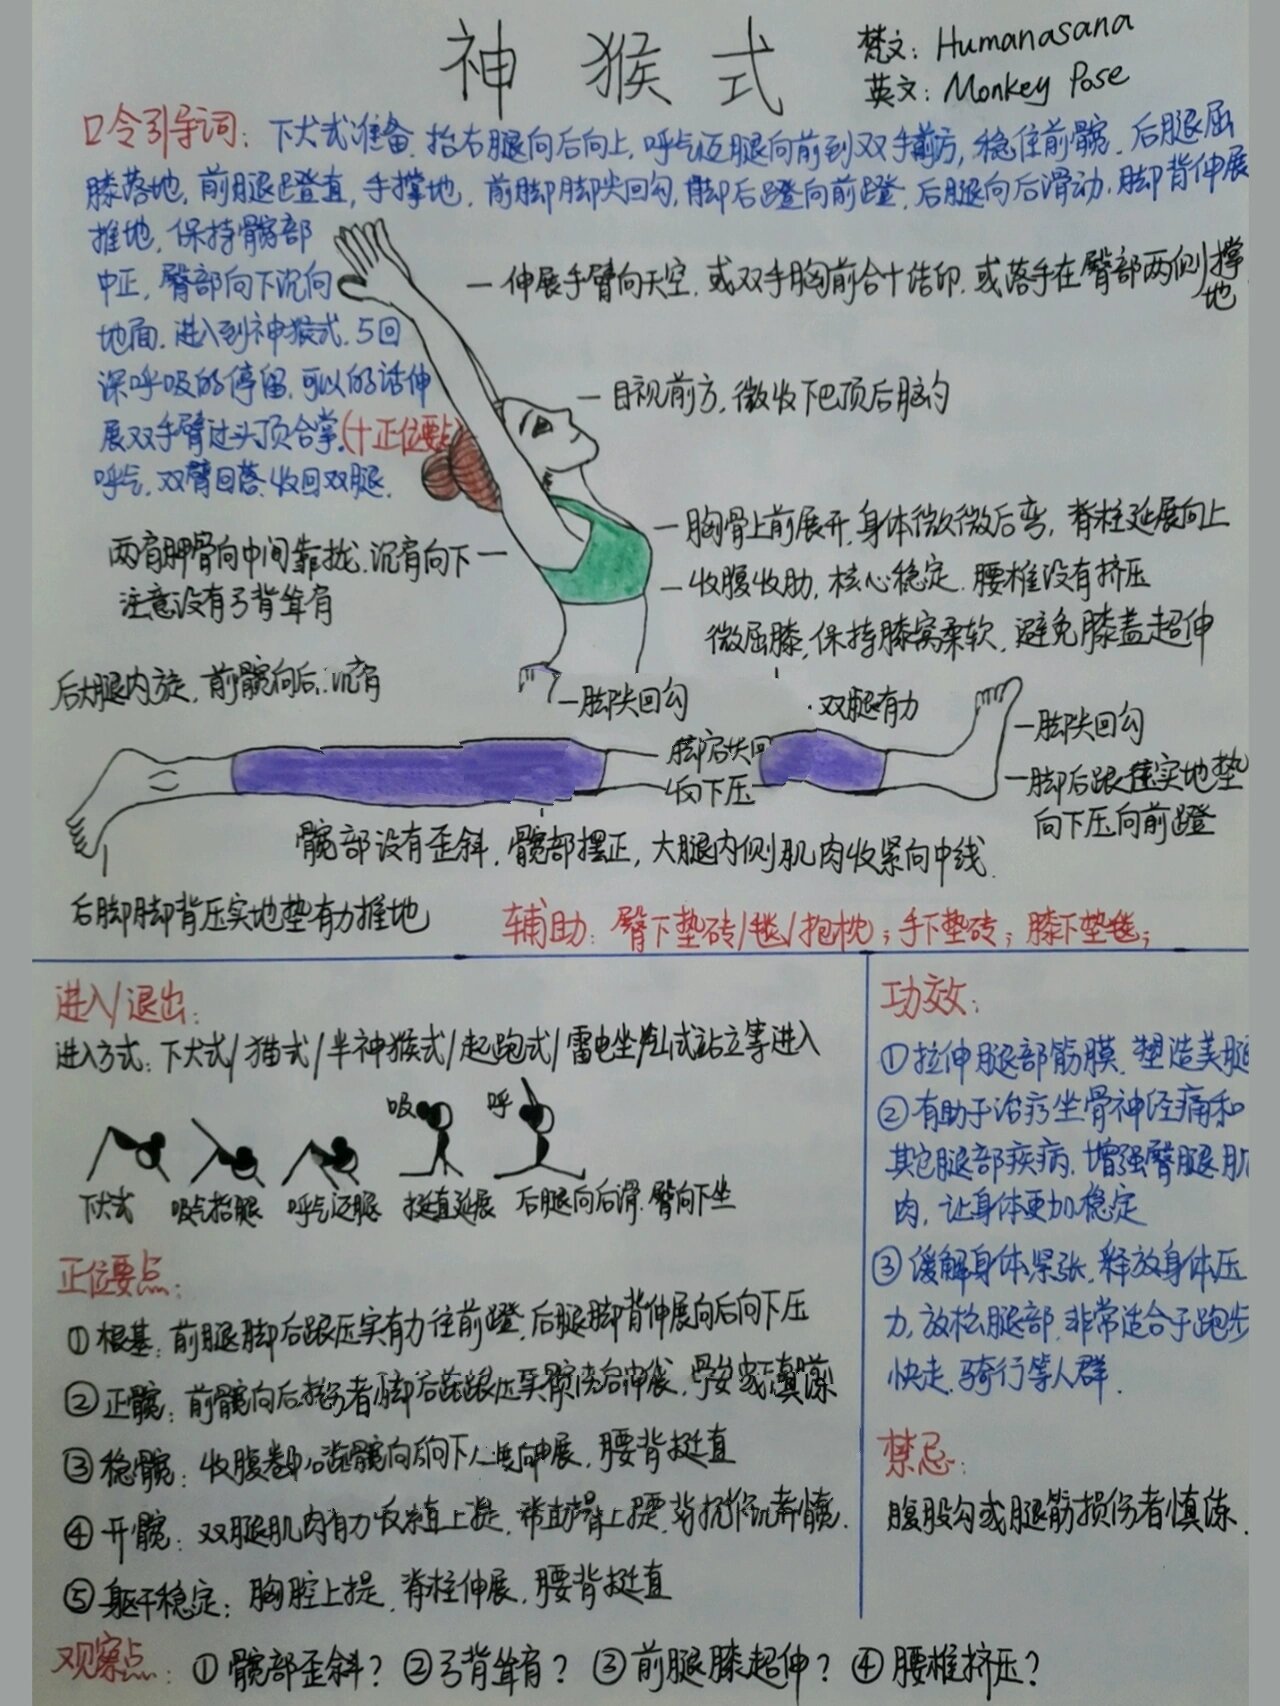 神猴式
梵文: Humanasana
英文: Monkey Pose
口令引导词: 下犬式准备, 抬右腿向后向上, 呼气迈腿向前到双手前方, 稳住前髋, 后腿屈
膝落地, 前腿蹬直, 手撑地, 前脚脚尖回勾, 脚后蹬向前蹬, 后腿向后滑动, 脚背伸展
推地, 保持髋部
中正, 臀部向下沉向
地面, 进入到神猴式, 5回
深呼吸的停留, 可以的话伸
展双手臂过头顶合掌,(十正位要点)
呼气, 双臂回落, 收回双腿.
伸展手臂向天空, 或双手胸前合十结印, 或落手在臀部两侧撑
地
目视前方, 微收下巴顶后脑勺
胸骨上前展开, 身体微微后弯, 脊柱延展向上
两肩胛骨向中间靠拢, 沉肩向下
注意没有弓背耸肩
收腹收肋, 核心稳定, 腰椎没有挤压
微屈膝, 保持膝窝柔软, 避免膝盖超伸
后大腿内旋, 前髋向后, 沉肩
脚尖回勾
双腿有力
脚尖回勾
脚后跟压实地垫
向下压向前蹬
向下压
髋部没有歪斜, 髋部摆正, 大腿内侧肌肉收紧向中线.
后脚脚背压实地垫有力推地
辅助: 臀下垫砖/毯/抱枕; 手下垫砖; 膝下垫毯;
进入/退出:
进入方式: 下犬式/猫式/半神猴式/起跑式/雷电坐/山式站立等进入
吸
呼
下犬式 吸气抬腿 呼气迈腿 挺直延展 后腿向后滑, 臀向下坐
正位要点:
①根基: 前腿脚后跟压实有力往前蹬, 后腿脚背伸展向后向下压
②正髋: 前髋向后
③稳髋: 收腹 髋向后向下 伸展, 腰背挺直
④开髋: 双腿肌肉有力收 上提,
⑤躯干稳定: 胸腔上提, 脊柱伸展, 腰背挺直
观察点: ①髋部歪斜? ②弓背耸肩? ③前腿膝超伸? ④腰椎挤压?
功效:
①拉伸腿部筋膜, 塑造美腿
②有助于治疗坐骨神经痛和
其它腿部疾病, 增强臀腿肌
肉, 让身体更加稳定
③缓解身体紧张, 释放身体压
力, 放松腿部, 非常适合于跑步
快走, 骑行等人群.
禁忌:
腹股勾或腿筋损伤者慎练.